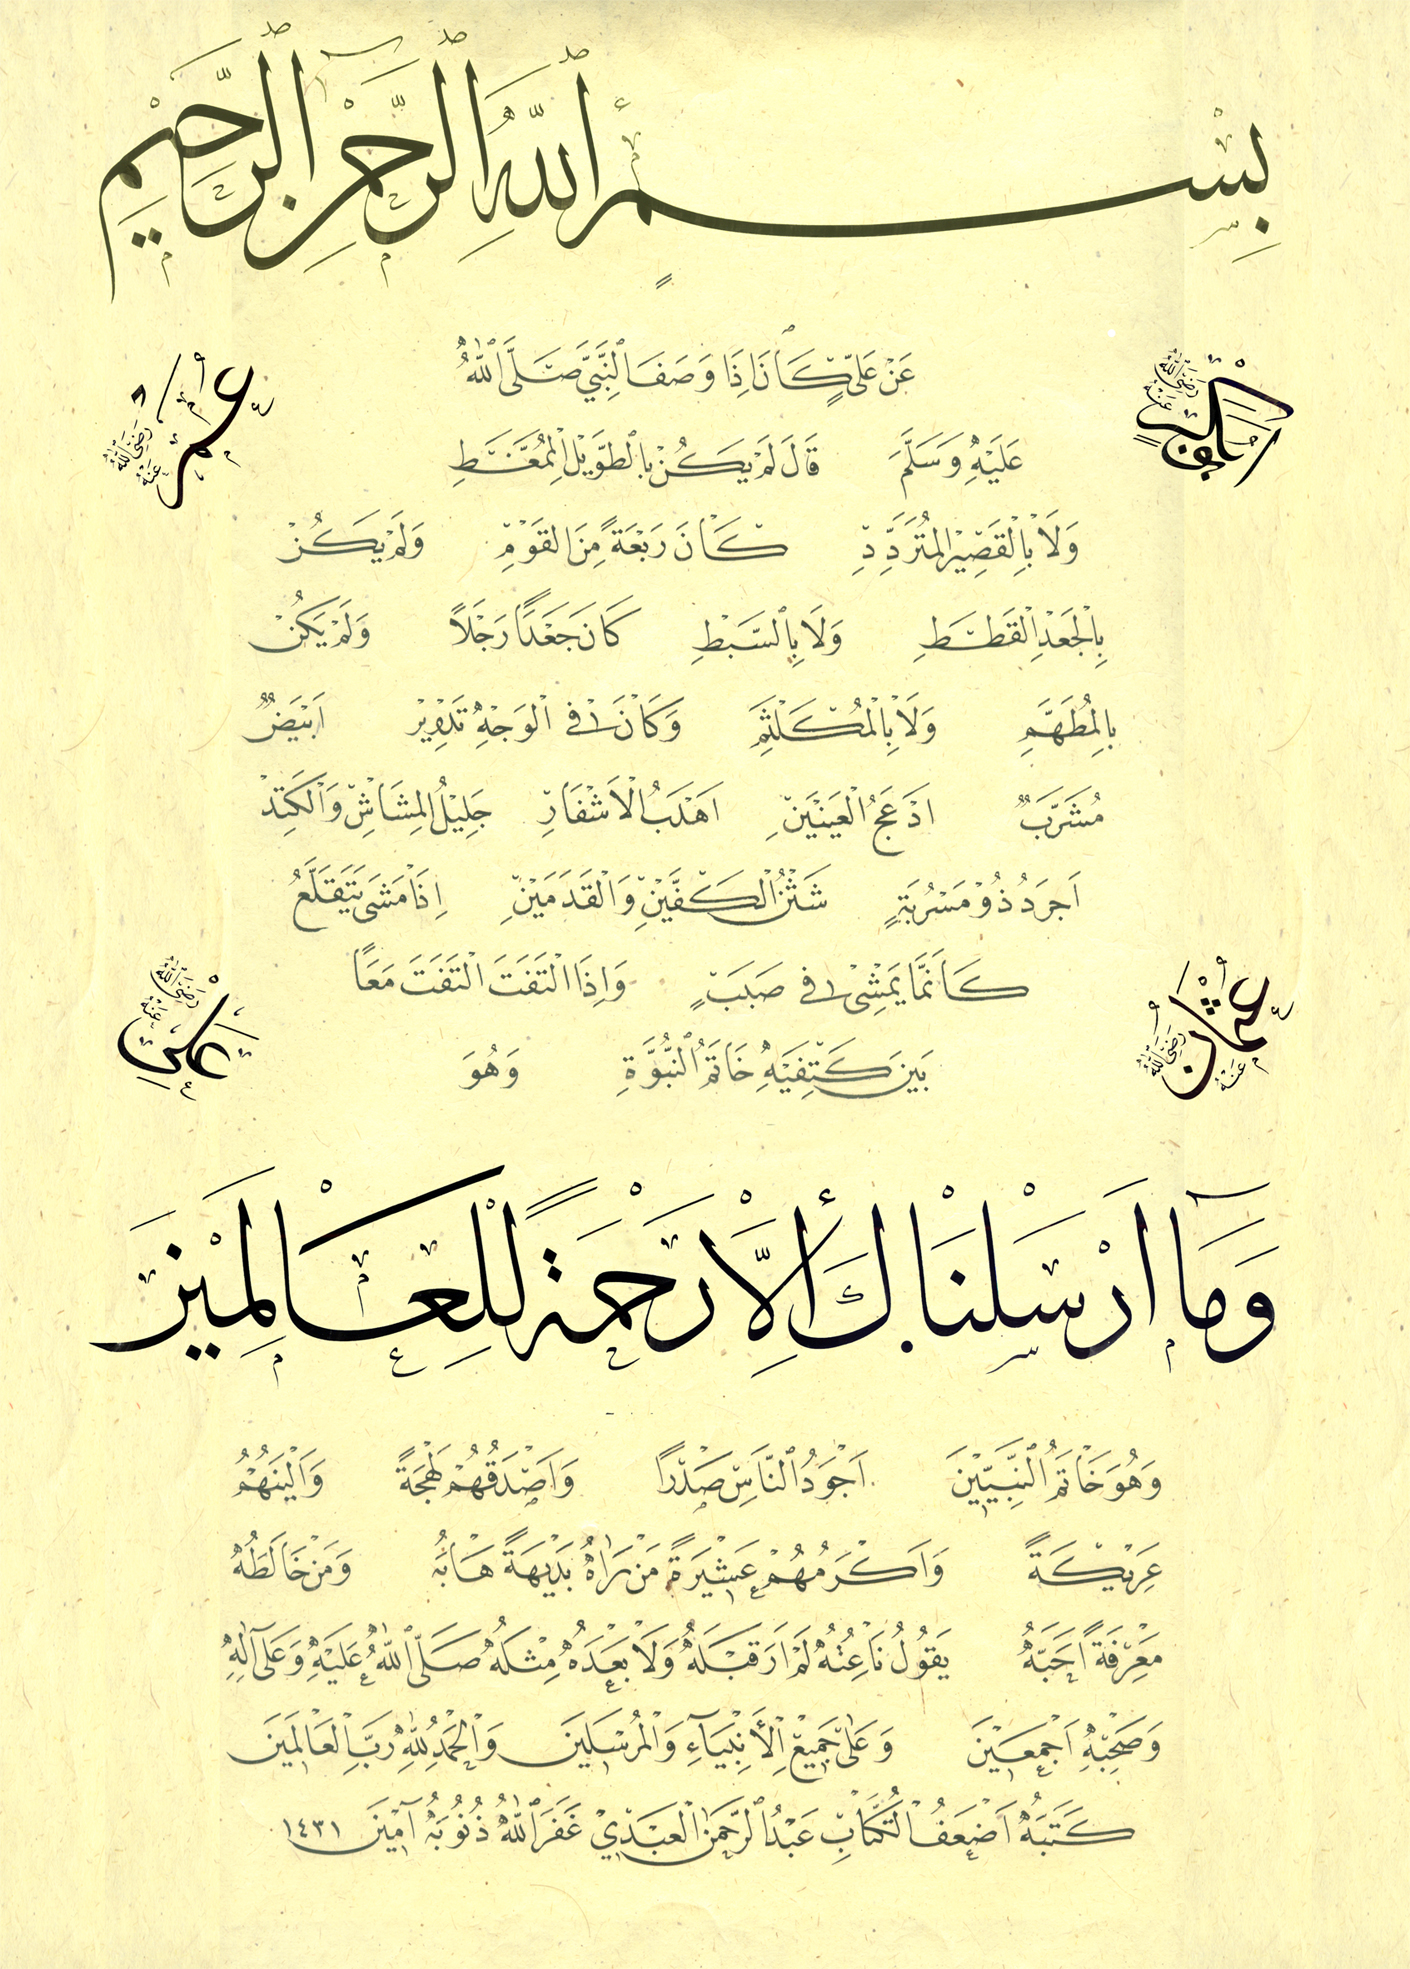 بِسْمِ ٱللَّهِ ٱلرَّحْمَٰنِ ٱلرَّحِيمِ
عَنْ عَلِيٍّ كَانَ اِذَا وَصَفَ ٱلنَّبِيَّ صَلَّى ٱللّٰهُ
عَلَيْهِ وَسَلَّمَ قَالَ لَمْ يَكُنْ بِٱلطَّوِيْلِ الْمُمَّغَطِ
وَلَا بِالْقَصِيْرِ الْمُتَرَدِّدِ كَانَ رَبْعَةً مِنَ الْقَوْمِ وَلَمْ يَكُنْ
بِالْجَعْدِ الْقَطَطِ وَلَا بِٱلسَّبْطِ كَانَ جَعْدًا رَجْلًا وَلَمْ يَكُنْ
بِالْمُطَهَّمِ وَلَا بِالْمُكَلْثَمِ وَكَانَ فِي الْوَجْهِ تَدْوِيْرٌ اَبْيَضُ
مُشَرَّبٌ اَدْعَجُ الْعَيْنَيْنِ اَهْدَبُ الْاَشْفَارِ جَلِيْلُ الْمُشَاشِ وَالْكَتِدِ
اَجْرَدُ ذُوْ مَسْرُبَةٍ شَثْنُ الْكَفَّيْنِ وَالْقَدَمَيْنِ اِذَا مَشَى يَتَقَلَّعُ
كَاَنَّمَا يَمْشِيْ فِي صَبَبٍ وَاِذَا الْتَفَتَ الْتَفَتَ مَعًا
بَيْنَ كَتِفَيْهِ خَاتَمُ ٱلنُّبُوَّةِ وَهُوَ
اَبُوبَكْرٍ رَضِيَ اللّٰهُ عَنْهُ
عُمَرُ رَضِيَ اللّٰهُ عَنْهُ
عُثْمَانُ رَضِيَ اللّٰهُ عَنْهُ
عَلِيٌّ رَضِيَ اللّٰهُ عَنْهُ
وَمَآ اَرْسَلْنَاكَ إِلَّا رَحْمَةً لِلْعَالَمِيْنَ
وَهُوَ خَاتَمُ ٱلنَّبِيِّيْنَ اَجْوَدُ ٱلنَّاسِ صَدْرًا وَاَصْدَقُهُمْ لَهْجَةً وَاَلْيَنُهُمْ
عَرِيْكَةً وَاَكْرَمُهُمْ عَشِيْرَةً مَنْ رَاٰهُ بَدِيْهَةً هَابَهُ وَمَنْ خَالَطَهُ
مَعْرِفَةً اَحَبَّهُ يَقُوْلُ نَاعِتُهُ لَمْ اَرَ قَبْلَهُ وَلَا بَعْدَهُ مِثْلَهُ صَلَّى ٱللّٰهُ عَلَيْهِ وَعَلَى آلِهِ
وَصَحْبِهِ اَجْمَعِيْنَ وَعَلَى جَمِيْعِ الْأَنْبِيَآءِ وَالْمُرْسَلِيْنَ وَالْحَمْدُ لِلّٰهِ رَبِّ الْعَالَمِيْنَ
كَتَبَهُ اَضْعَفُ الْكُتَّابِ عَبْدُ ٱلرَّحْمٰنِ الْعَبْدِيْ غَفَرَ ٱللّٰهُ ذُنُوْبَهُ آمِيْنَ ١٤٣١